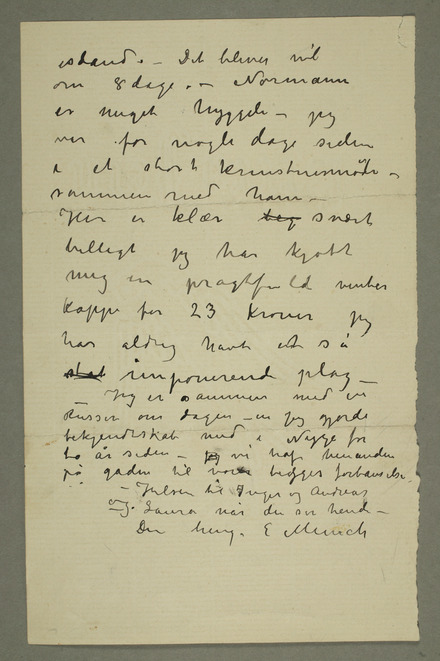 istand. – Det bliver vel
om 8 dage. – Normann
er meget hyggeli – jeg
var for nogle dage siden
i et stort kunstnermøde –
sammen med ham –
Her er klær svært
billigt jeg har kjøbt
mig en pragtfuld vinter
kappe for 23 kroner jeg
har aldrig havt et så
imponerend plag –
– Jeg er sammen med en
Russer om dagen – en jeg gjorde
bekjendtskab med i Nizza for
to år siden – vi traf hinanden
på gaden til begges forbauselse.
– Hilsen til Inger og Andreas
og Laura når du ser hende –
Din heng. E Munch